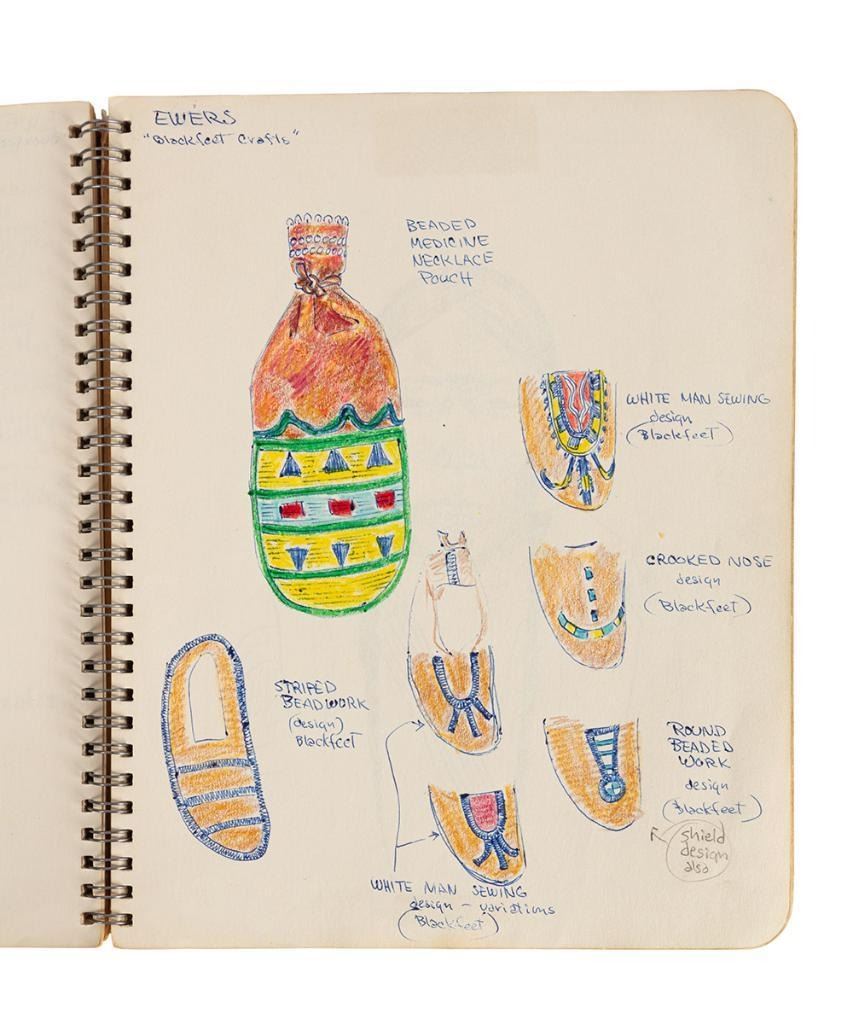 EWERS
"Blackfeet Crafts"
BEADED
MEDICINE
NECKLACE
POUCH
WHITE MAN SEWING
design
(Blackfeet)
CROOKED NOSE
design
(Blackfeet)
STRIPED
BEADWORK
(design)
Blackfeet
ROUND
BEADED
WORK
design
(Blackfeet)
shield
design
also
WHITE MAN SEWING
design - variations
(Blackfeet)